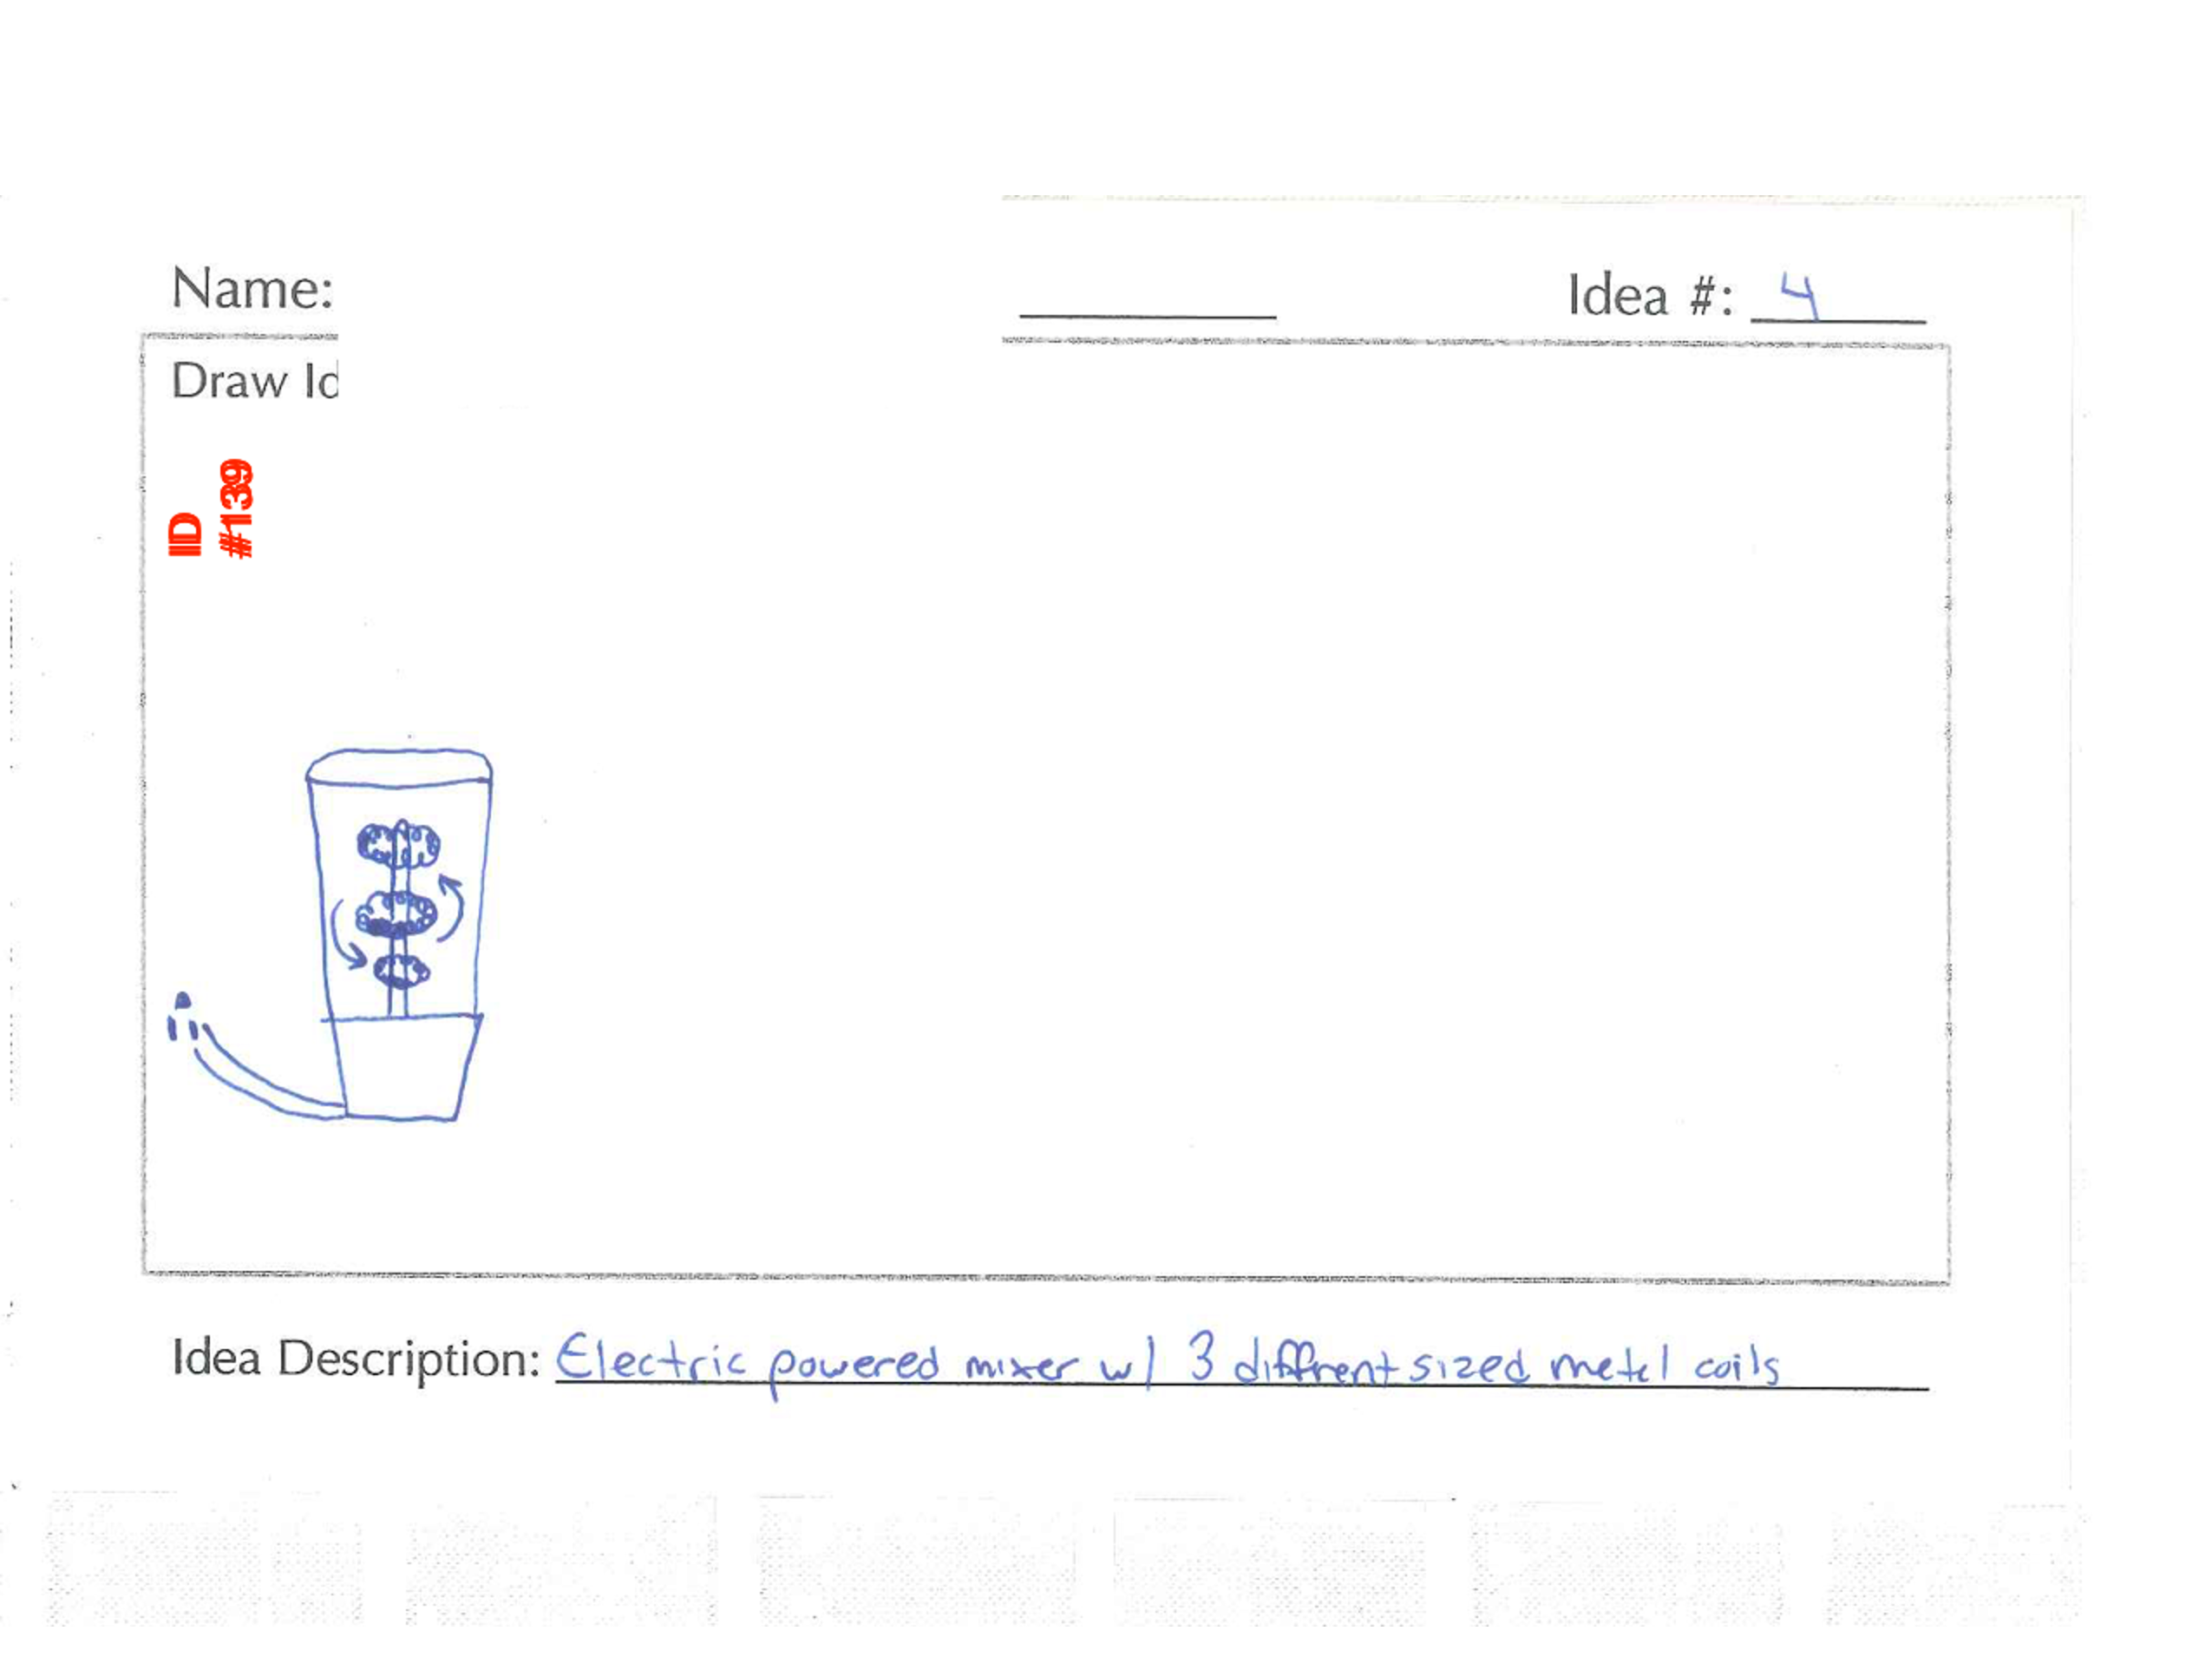 Name:
Idea #: 4
Draw Id
ID
#139
Idea Description: Electric powered mixer w/ 3 diffrent sized metel coils